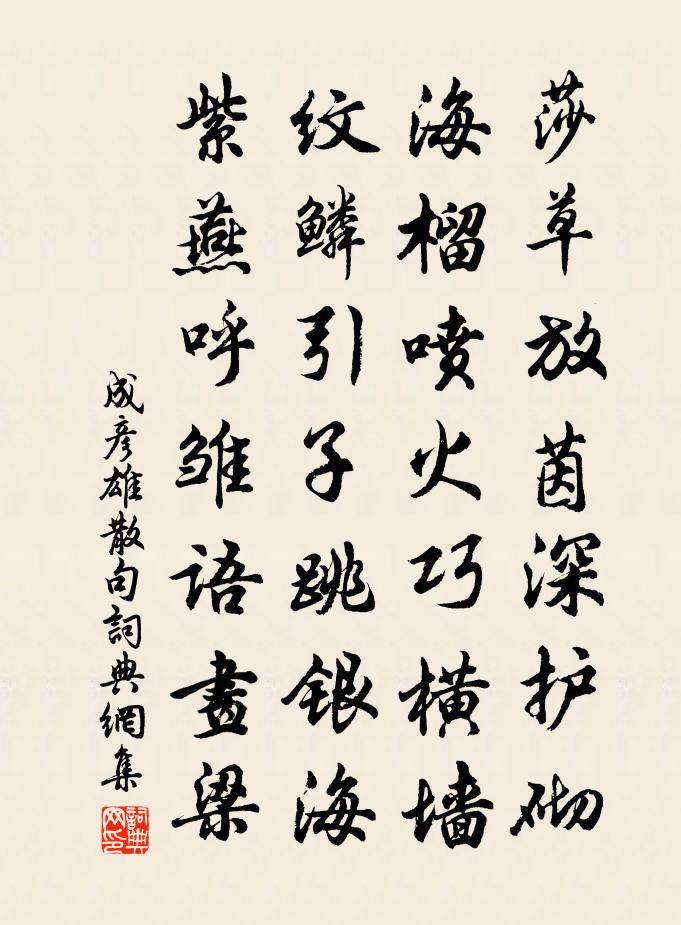 莎草放茵深护砌
海榴喷火巧横墙
纹鳞引子跳银海
紫燕呼雏语畫梁
成彦雄散句詞典網集
詞典網印